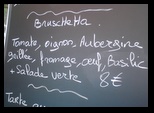 Bruschetta.
Tomate, oignon, Aubergine
grillée, fromage, oeuf, Basilic
+ Salade verte 8€
Tarte